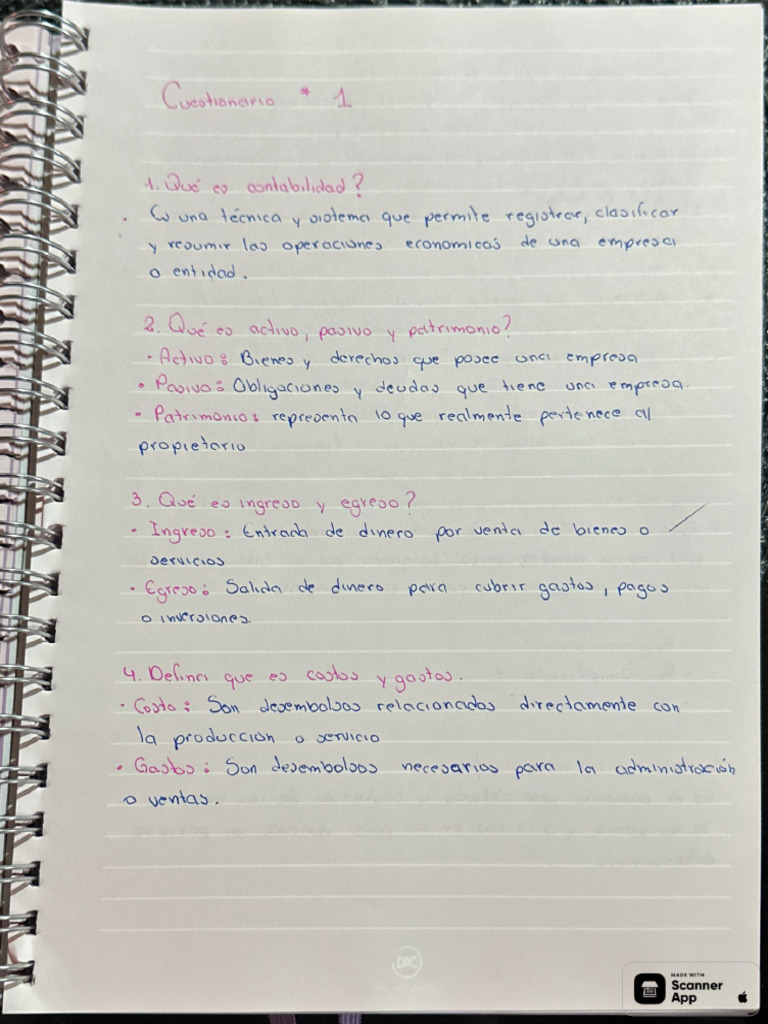 Cuestionario # 1
1. Qué es contabilidad?
• Es una técnica y sistema que permite registrar, clasificar
y resumir las operaciones economicas de una empresa
o entidad.
2. Qué es activo, pasivo y patrimonio?
• Activo: Bienes y derechos que posee una empresa
• Pasivo: Obligaciones y deudas que tiene una empresa.
• Patrimonio: representa lo que realmente pertenece al
propietario
3. Qué es ingreso y egreso?
• Ingreso: Entrada de dinero por venta de bienes o
servicios
• Egreso: Salida de dinero para cubrir gastos, pagos
o inversiones.
4. Defina que es costos y gastos.
• Costo: Son desembolsos relacionados directamente con
la producción o servicio
• Gastos: Son desembolsos necesarios para la administración
o ventas.
DAC
MADE WITH
Scanner
App